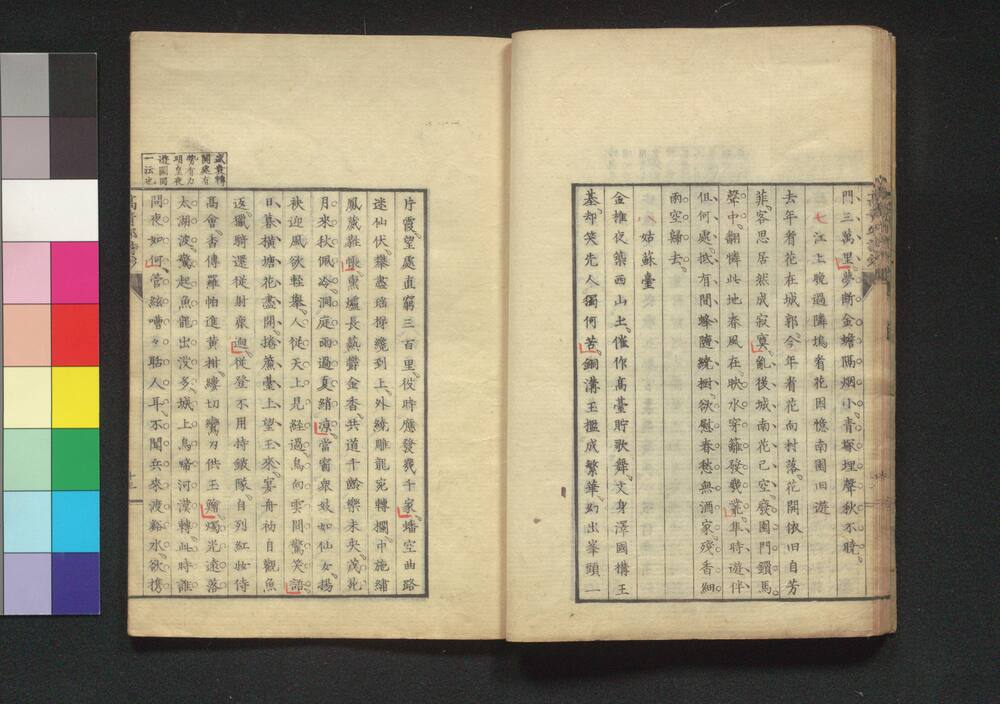 門三萬里夢斷金蟾隔烟小青塚埋聲秋不曉
七 江上晚過隣塢看花因憶南園旧遊
去年看花在城郭今年看花向村落花開依旧自芳
菲客思居然成寂寞亂後城南花已空廢園門鎖馬
聲中翻憐此地春風在映水穿籬發幾叢年時遊伴
但何處抵有閒蜂隨繞樹欲慰春愁無酒家殘香細
雨空歸去
八 姑蘇臺
金椎夜築西山土催作高臺貯歌舞文身澤國搆王
基却笑先人獨何苦銅溝玉檻成繁華幻出峯頭一
片霞望處直窮三百里役時應發幾千家蟠空曲路
迷仙仗輦盡瑤搒纜到上外繞雕龍宛轉欄中施繡
鳳葳蕤帳熏爐長熱鬱金香共道千齡樂未央茂苑
月來秋佩冷洞庭雨過夏綃凉當窗衆妓如仙女揚
袂迎風欲輕舉人從天上見經過鳥向雲間驚笑語
日暮橫塘花盡開捲簾臺上望王來宴舟初自觀魚
返獵騎還從射鹿迴從登不用持鈹隊自列紅妝侍
高會香傳羅帕進黃柑縷切鸞刀供玉鱠燭光遠落
太湖波驚起魚龍出沒多城上烏啼河漢轉此時誰
問夜如何管絃嘈々聒人耳不聞兵來渡谿水欲携
盛衰轉
關處有
勢有力
明皇夜
遊圖同
一法也